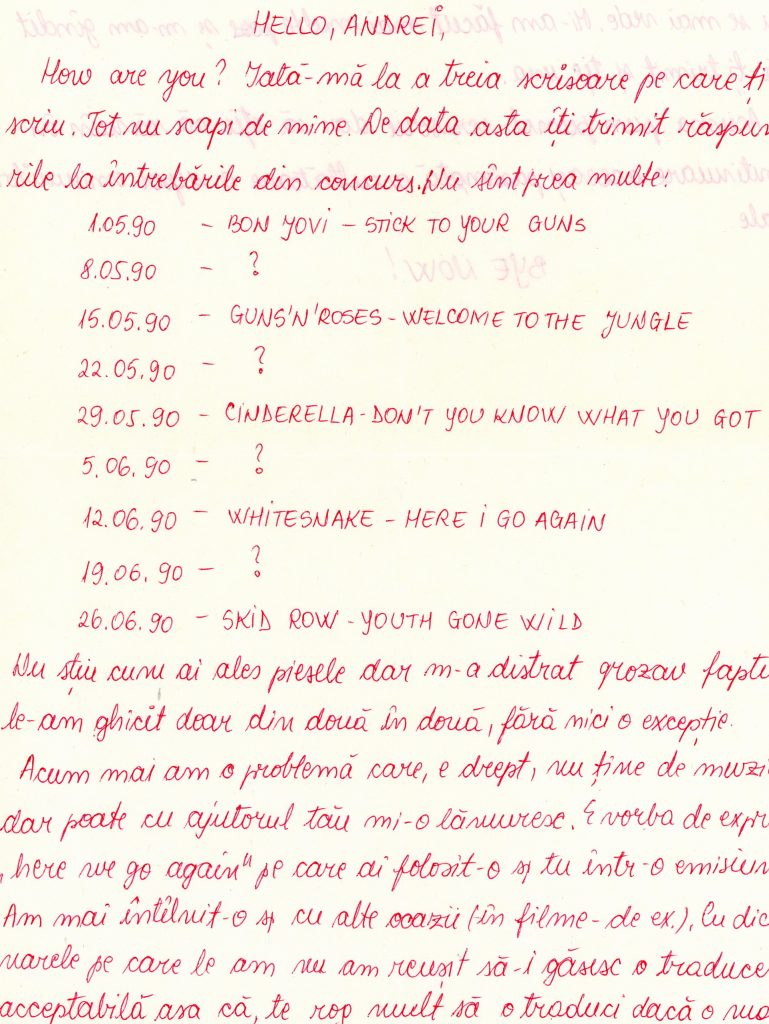 HELLO, ANDREI,
How are you? Iată-mă la a treia scrisoare pe care ți
scriu. Tot nu scapi de mine. De data asta îți trimit răspun
rile la întrebările din concurs. Nu sînt prea multe:
1.05.90 - BON YOVI - STICK TO YOUR GUNS
8.05.90 - ?
15.05.90 - GUNS'N'ROSES - WELCOME TO THE JUNGLE
22.05.90 - ?
29.05.90 - CINDERELLA - DON'T YOU KNOW WHAT YOU GOT
5.06.90 - ?
12.06.90 - WHITESNAKE - HERE I GO AGAIN
19.06.90 - ?
26.06.90 - SKID ROW - YOUTH GONE WILD
Nu știu cum ai ales piesele dar m-a distrat grozav faptu
le-am ghicit doar din două în două, fără nici o excepție.
Acum mai am o problemă care, e drept, nu ține de muzi
dar poate cu ajutorul tău mi-o lămuresc. E vorba de expr
„here we go again" pe care ai folosit-o și tu într-o emisiun
Am mai întîlnit-o și cu alte ocazii (în filme - de ex.). Cu dic
narele pe care le am nu am reușit să-i găsesc o traduce
acceptabilă așa că, te rog mult să o traduci dacă o mai
BYE NOW!